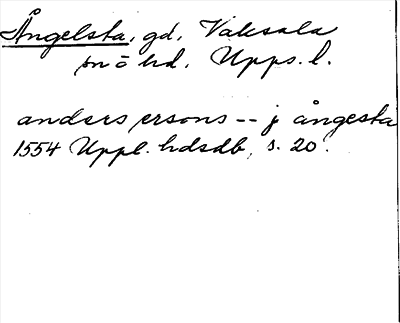 Ångelsta, gd, Vaksala
sn o hd, Upps. l.
anders ersons -- j ångesta
1554 Uppl. hdsdb, s. 20.